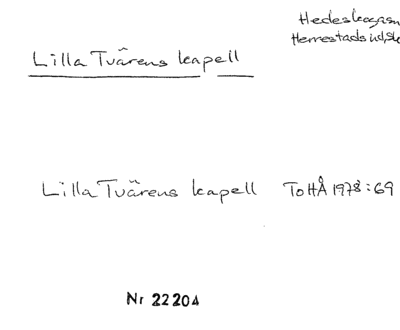 Hedeskogasn
Herrestads hd, Sk
Lilla Tvärens kapell
Lilla Tvärens kapell ToHÅ 1978:69
Nr 22204